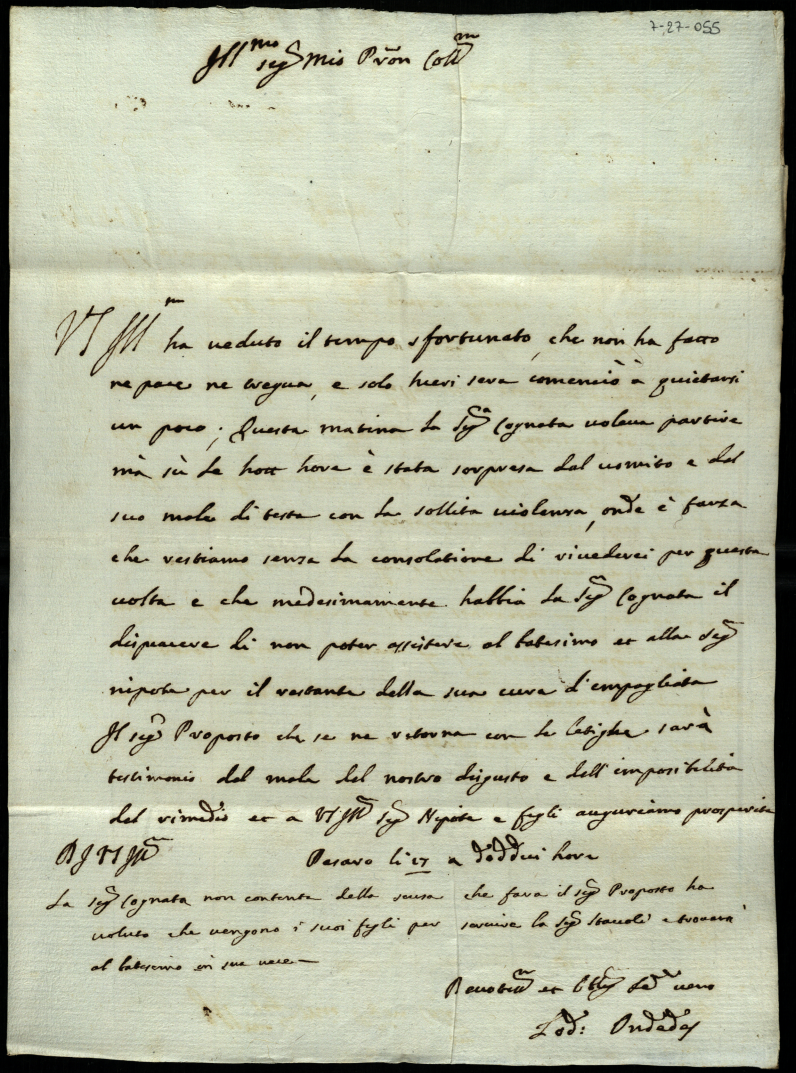 7-27-055
Ill.mo sig.r Mio P̃ron Coll.mo
VS Ill.ma ha veduto il tempo sfortunato, che non ha fatto
ne pace ne tregua, e solo hieri sera comenciò à quietarsi
un poco; Questa matina la Sig.a Cognata voleva partire
mà sù le hott hore è stata sorpresa dal vomito e dal
suo male di testa con la sollita violenza, onde è forza
che restiamo senza la consolatione di rivederci per questa
volta e che medesimamente habbia la Sig.ra Cognata il
dispiacere di non poter assistere al batesimo et alla Sig.ra
nipote per il restante della sua cura d'impagliata
Il sig.r Proposto che se ne ritorna con le letighe sarà
testimonio del male del nostro disgusto e dell'imposibilità
del rimedio et a VS Ill.ma Sig.ra Nipote e figli auguriamo prosperità
D VS Ill.ma Pesaro li 27 a dodeci hore
La sig.ra Cognata non contenta della scusa che fara il sig.r Proposto ha
voluto che vengono i suoi figli per servire la Sig.ra Staccoli e trovarsi
al batesimo in sua vece
Devotiss.mo et Obblig.mo Se.re vero
Lod: Ondedei